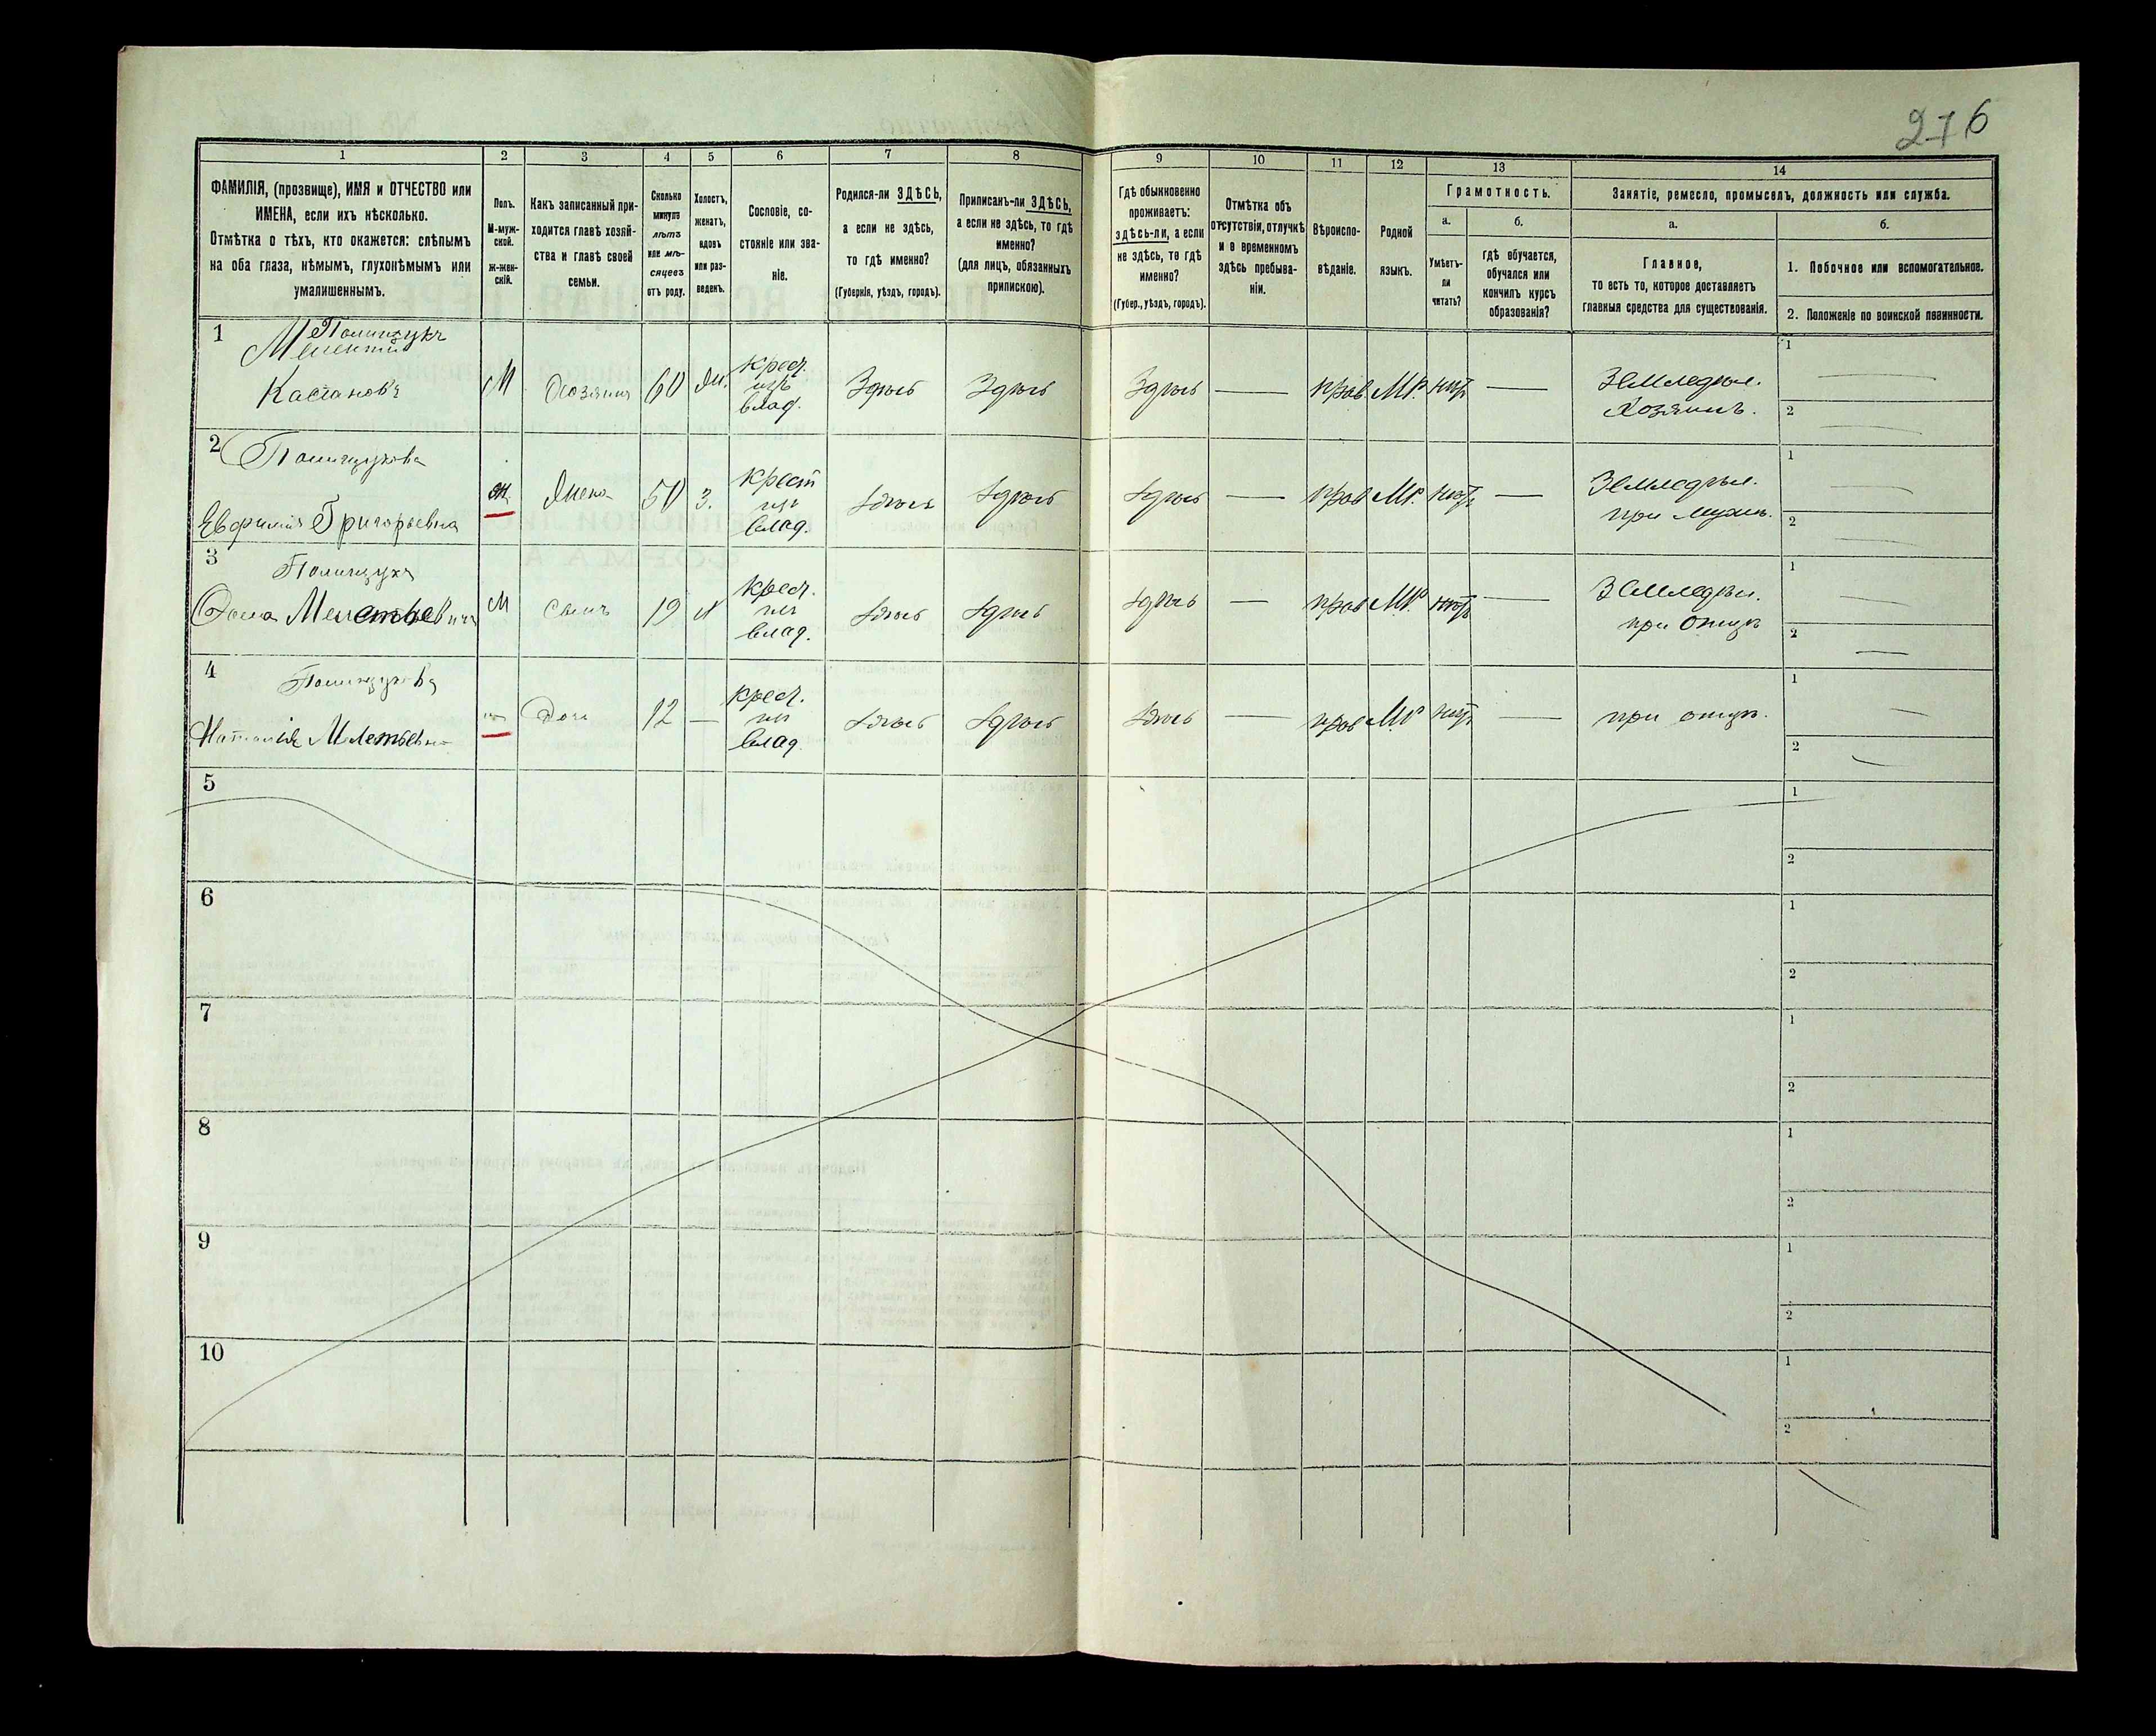 276
1 2 3 4 5 6 7 8 9 10 11 12 13 14
ФАМИЛІЯ, (прозвище), ИМЯ и ОТЧЕСТВО или
ИМЕНА, если ихъ нѣсколько.
Отмѣтка о тѣхъ, кто окажется: слѣпымъ
на оба глаза, нѣмымъ, глухонѣмымъ или
умалишеннымъ.
Полъ.
М-муж-
ской.
Ж-жен-
скій.
Какъ записанный при-
ходится главѣ хозяй-
ства и главѣ своей
семьи.
Сколько
минуло
лѣтъ
или мѣ-
сяцевъ
отъ роду.
Холостъ,
женатъ,
вдовъ
или раз-
веденъ.
Сословіе, со-
стояніе или зва-
ніе.
Родился-ли ЗДѢСЬ,
а если не здѣсь,
то гдѣ именно?
(Губернія, уѣздъ, городъ).
Приписанъ-ли ЗДѢСЬ,
а если не здѣсь, то гдѣ
именно?
(для лицъ, обязанныхъ
припискою).
Гдѣ обыкновенно
проживаетъ:
здѣсь-ли, а если
не здѣсь, то гдѣ
именно?
(Губер., уѣздъ, городъ).
Отмѣтка объ
отсутствіи, отлучкѣ
и о временномъ
здѣсь пребыва-
ніи.
Вѣроиспо-
вѣданіе.
Родной
языкъ.
Грамотность.
а.
Умѣетъ-
ли
читать?
б.
гдѣ обучается,
обучался или
кончилъ курсъ
образованія?
Занятіе, ремесло, промыселъ, должность или служба.
а.
Главное,
то есть то, которое доставляетъ
главныя средства для существованія.
б.
1. Побочное или вспомогательное.
2. Положеніе по воинской повинности.
1
Полищукъ
Мелентій
Касіановъ
М Хозяинъ 60 Ж.
Крест.
изъ
влад.
Здѣсь Здѣсь Здѣсь — прав. М.р. нѣтъ —
Земледѣл.
Хозяинъ.
1
2
2
Полищукова
Евфимія Григорьевна
Ж Жена 50 З.
Крест
изъ
влад.
здѣсь здѣсь здѣсь — прав М.р. нѣтъ —
Земледѣл.
при мужѣ.
1
2
3
Полищукъ
М Сынъ 19 Х
Крест.
изъ
влад.
здѣсь здѣсь здѣсь — прав М.р. нѣтъ —
Земледѣл.
при отцѣ
1
2
4
Полищукова
Наталія
Дочь 12 —
Крест.
изъ
влад.
здѣсь здѣсь здѣсь — прав М.р. нѣтъ —
при отцѣ.
1
2
5
1
2
6
1
2
7
1
2
8
1
2
9
1
2
10
1
2